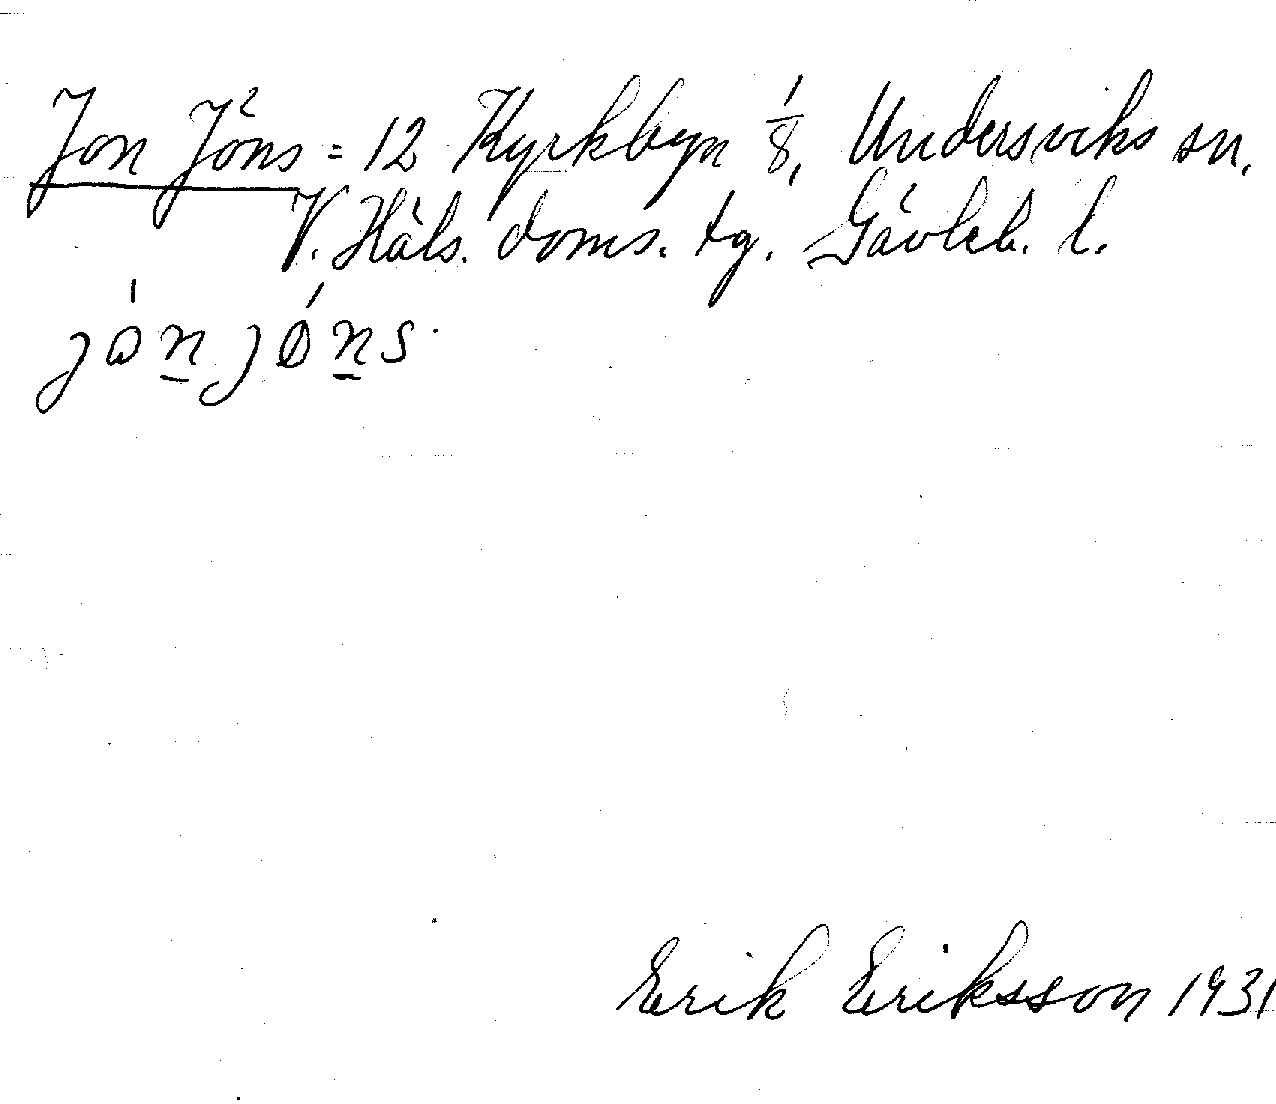 Jon Jöns = 12 Kyrkbyn 1/8, Undersviks sn.
V. Häls. doms. tg. Gävleb. l.
jón jǿns.
Erik Eriksson 1931